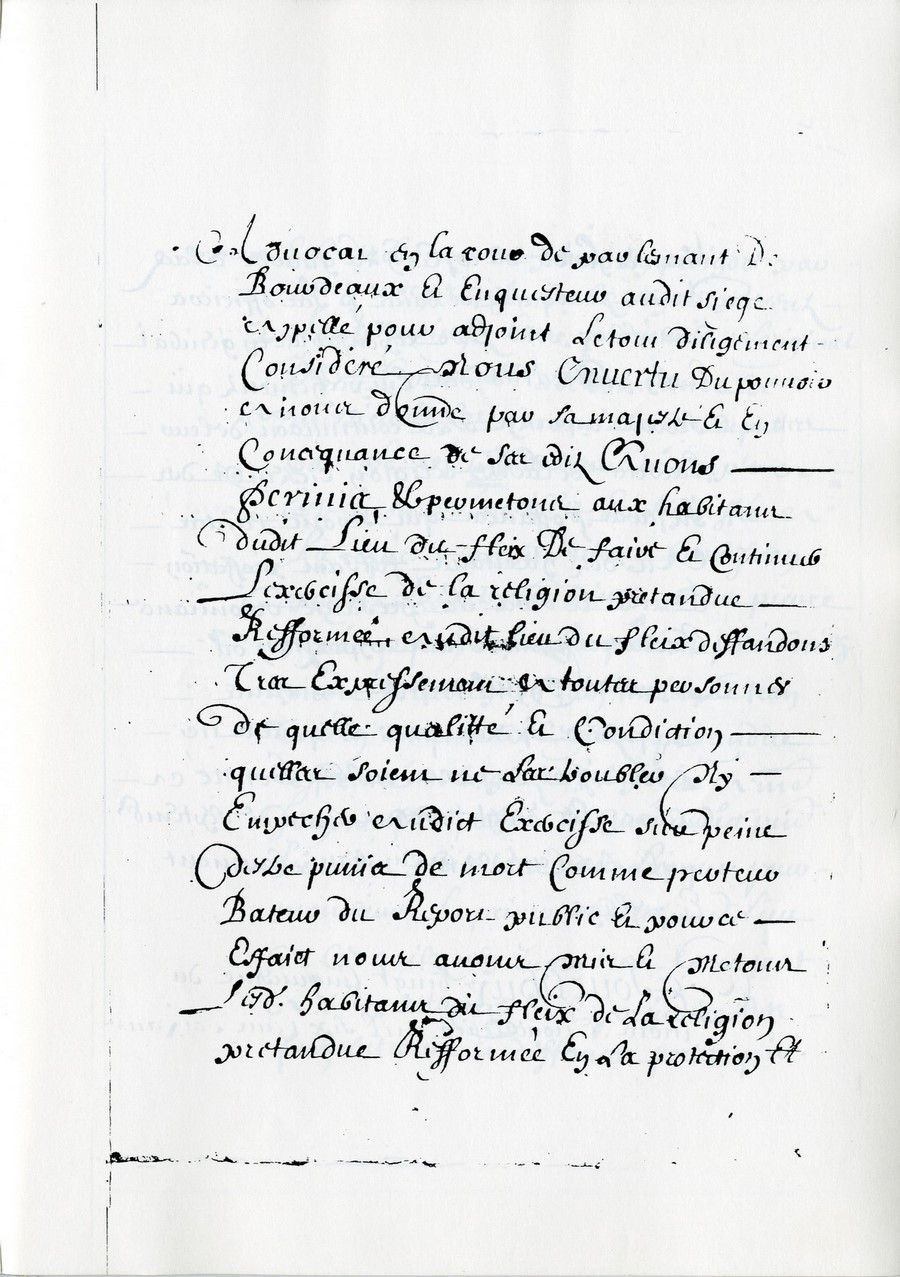 Advocat en la cour de parlemant De
Bourdeaux Et Enquesteur audit siege
appellé pour adjoint Le tout diligement
Consideré Nous En vertu Du pouvoir
a nous donné par sa majesté Et En
Concequance de ses edis Avons
Permis & permetons aux habitans
dudit Lieu du fleix De faire Et Continuer
Lexercisse de la religion pretandue
Refformeé audit lieu du fleix deffandons
Tres Expressemant a toutes personnes
de quelle qualitté Et Condition
quelles soient ne Les troubler Ny
Empecher audict Exercisse sur peine
destre punis de mort Comme perteur
Bateur du Repos public Et pour ce
Effaict nous avons mis Et Metons
Lesd. habitans du fleix de La religion
pretandue Refformeé En La protection Et